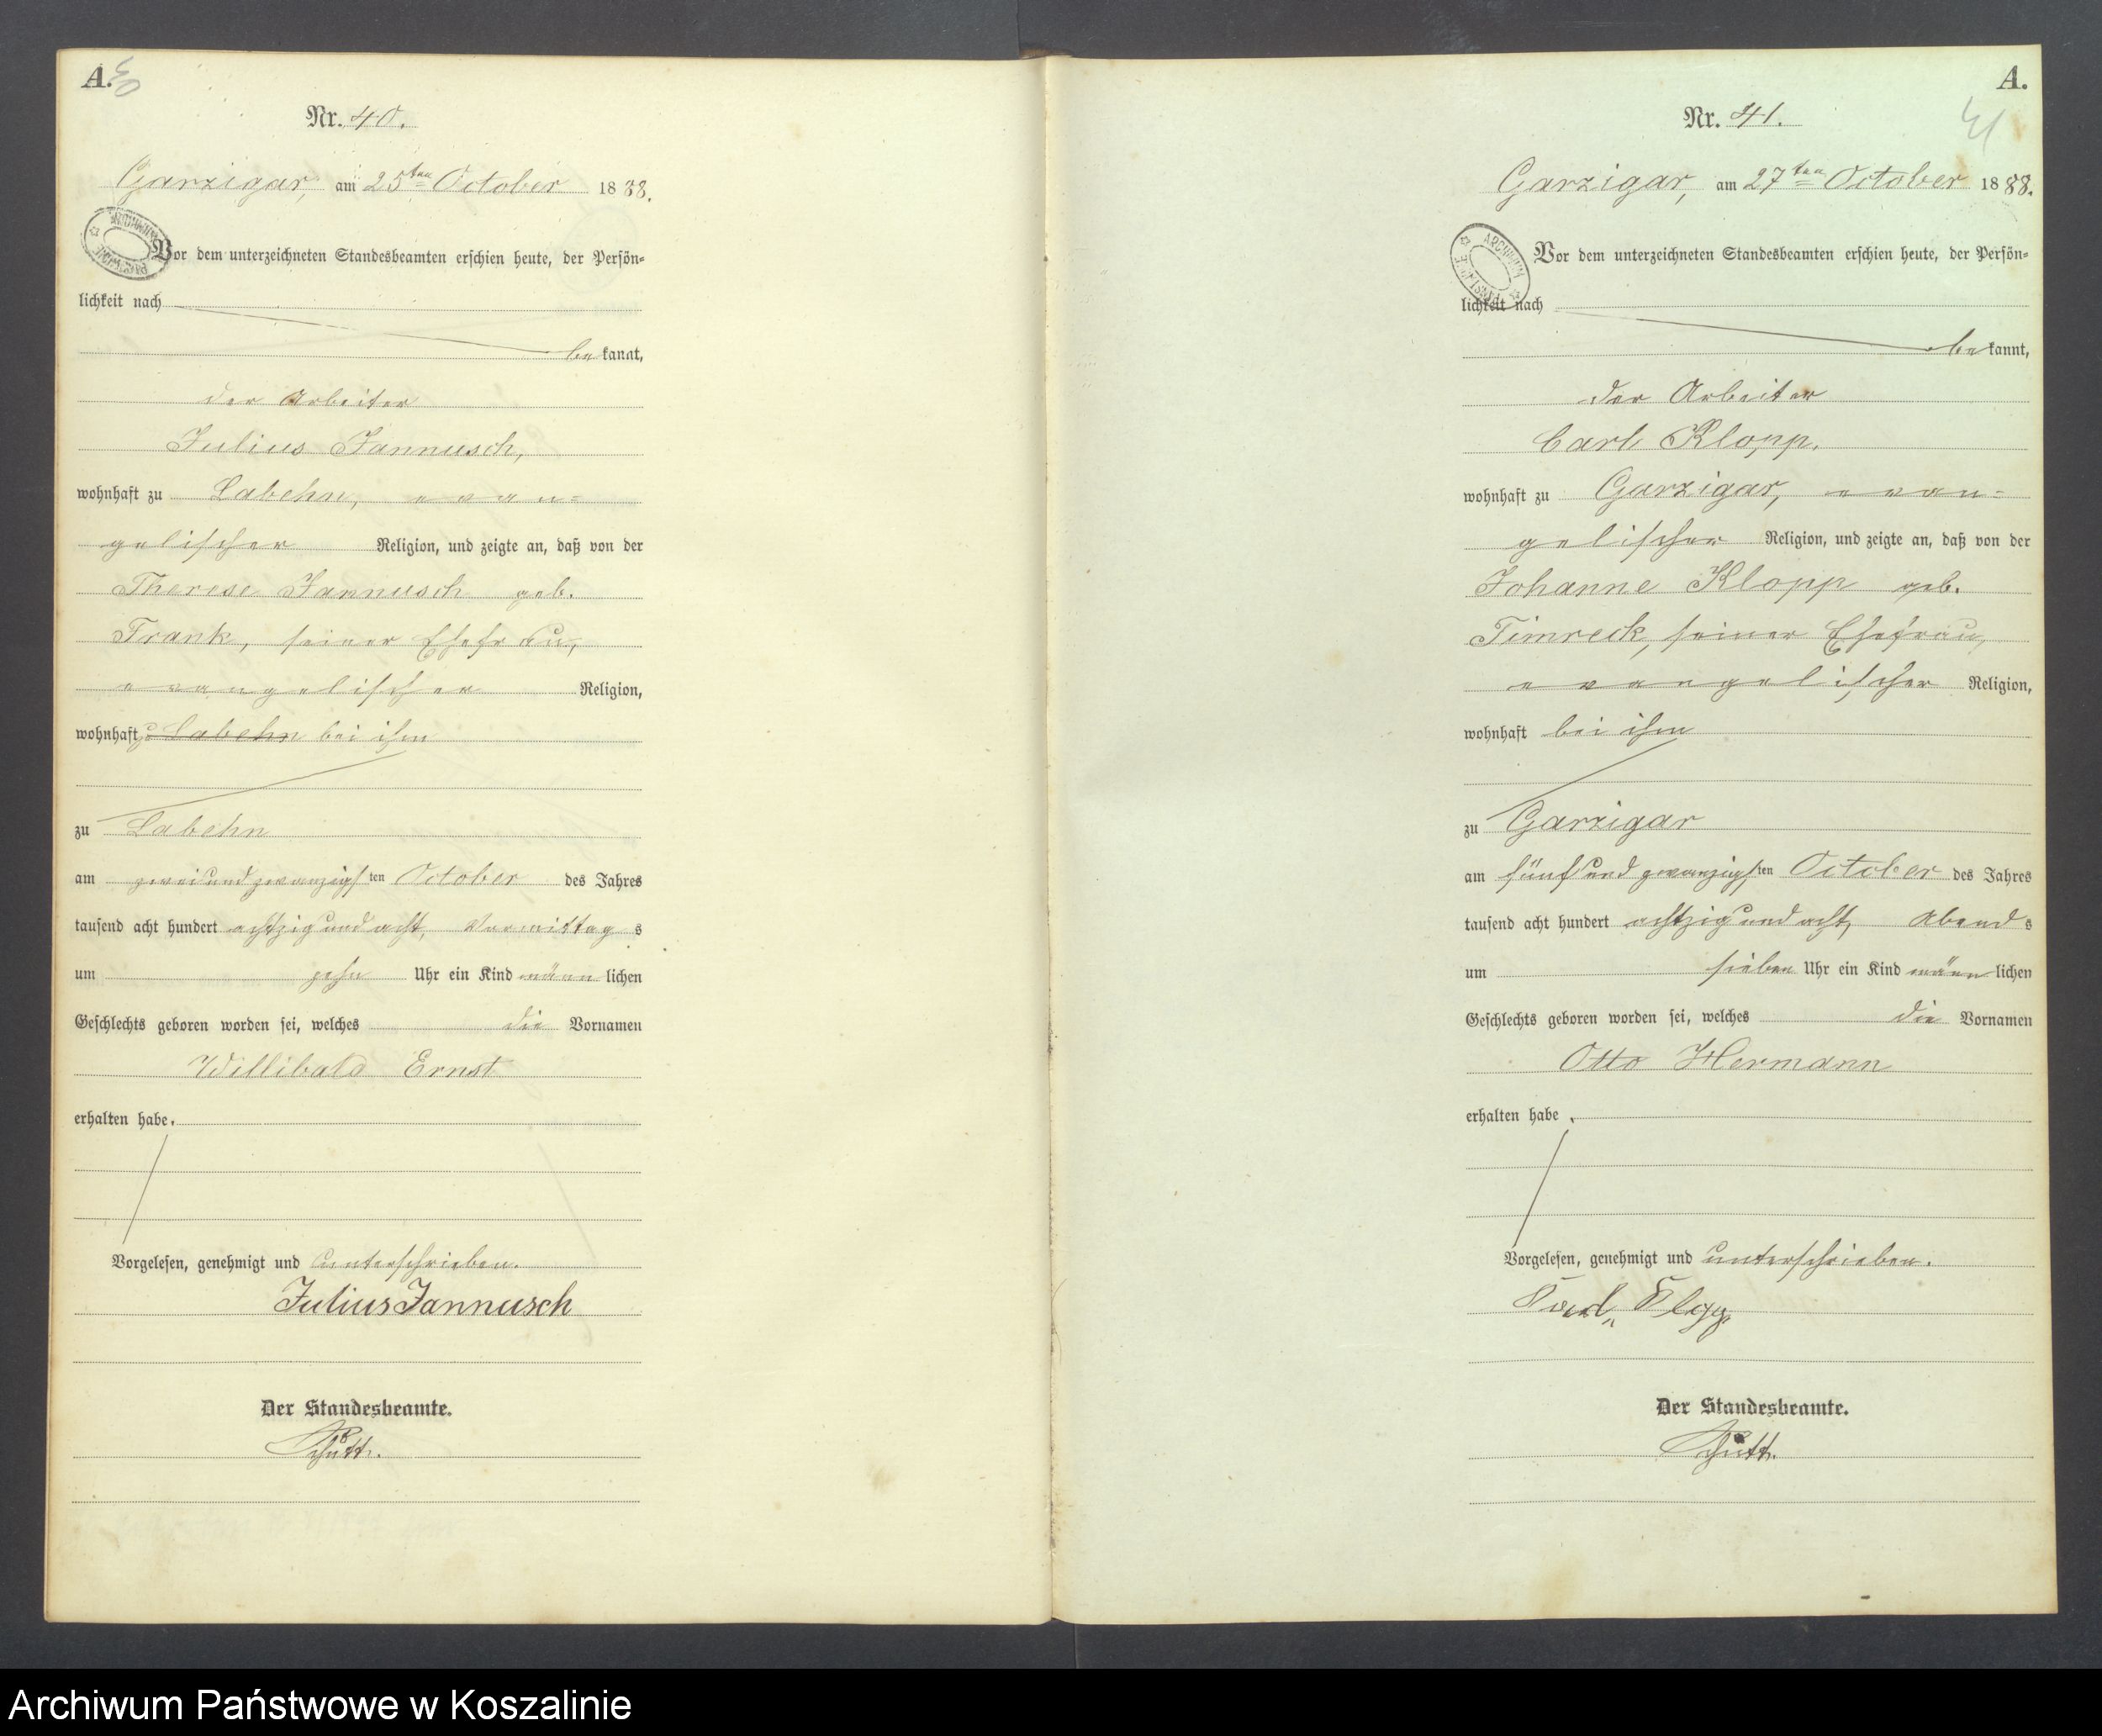 A.
40
Nr. 40.
Garzigar, am 25ten October 1888.
ARCHIWUM PAŃSTWOWE
Vor dem unterzeichneten Standesbeamten erschien heute, der Persön=
lichkeit nach
bekannt,
der Arbeiter
Julius Jannusch,
wohnhaft zu Labehn, evan=
gelischer Religion, und zeigte an, daß von der
Therese Jannusch geb.
Frank, seiner Ehefrau,
evangelischer Religion,
wohnhaft zu Labehn bei ihm
zu Labehn
am zweiundzwanzigsten October des Jahres
tausend acht hundert achtzig und acht, Vormittags
um zehn Uhr ein Kind männlichen
Geschlechts geboren worden sei, welches die Vornamen
Willibald Ernst
erhalten habe.
Vorgelesen, genehmigt und unterschrieben.
Julius Jannusch
Der Standesbeamte.
Schütt.
A.
41
Nr. 41.
Garzigar, am 27ten October 1888.
ARCHIWUM PAŃSTWOWE
Vor dem unterzeichneten Standesbeamten erschien heute, der Persön=
lichkeit nach
bekannt,
der Arbeiter
Carl Klopp,
wohnhaft zu Garzigar, evan=
gelischer Religion, und zeigte an, daß von der
Johanne Klopp geb.
Timreck, seiner Ehefrau,
evangelischer Religion,
wohnhaft bei ihm
zu Garzigar
am fünfundzwanzigsten October des Jahres
tausend acht hundert achtzig und acht, Abends
um sieben Uhr ein Kind männlichen
Geschlechts geboren worden sei, welches die Vornamen
Otto Hermann
erhalten habe.
Vorgelesen, genehmigt und unterschrieben.
Carl Klopp
Der Standesbeamte.
Schütt.
Archiwum Państwowe w Koszalinie